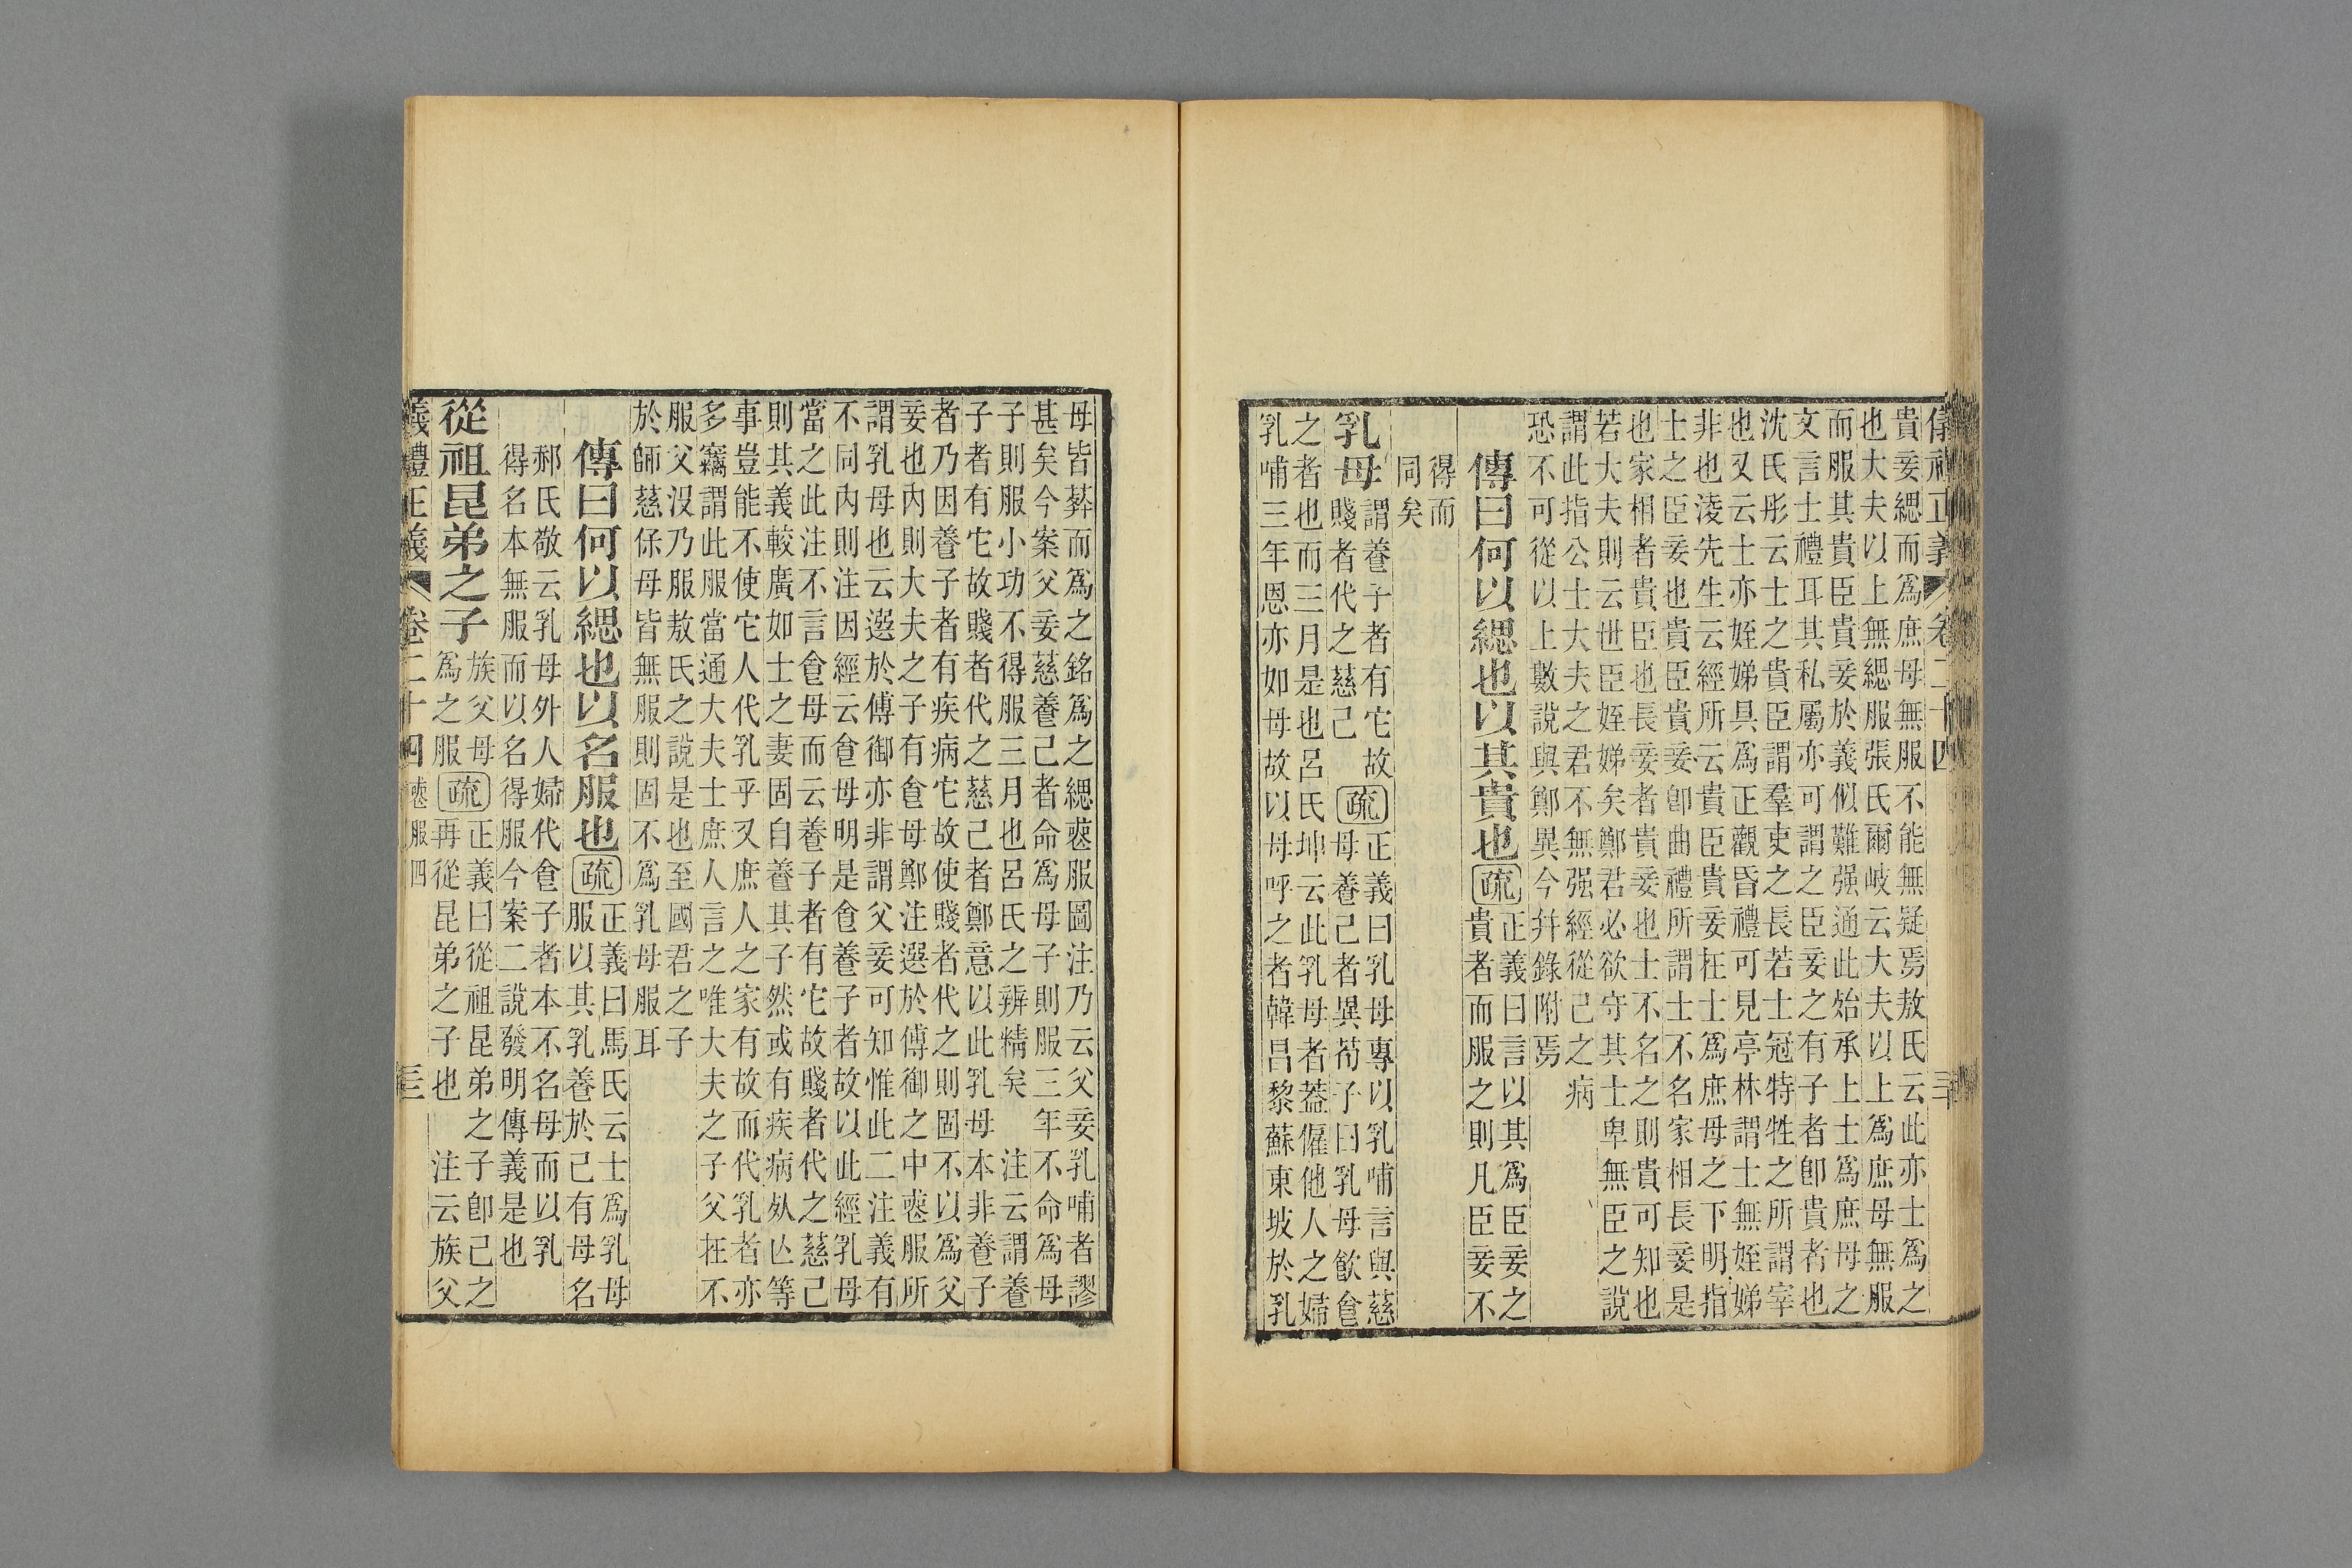 儀禮正義 卷二十四 三
貴妾緦而爲庶母無服不能無疑焉敖氏云此亦士爲之
也大夫以上無緦服張氏爾岐云大夫以上爲庶母無服
而服其貴臣貴妾於義似難强通此始承上士爲庶母之
文言士禮耳其私屬亦可謂之臣妾之有子者卽貴者也
沈氏彤云士之貴臣謂羣吏之長若士冠特牲之所謂宰
也又云士亦姪娣具爲正觀昏禮可見亭林謂士無姪娣
非也淩先生云經所云貴臣貴妾在士爲庶母之下明指
士之臣妾也貴臣貴妾卽曲禮所謂士不名家相長妾是
也家相者貴臣也長妾者貴妾也士不名之則貴可知也
若大夫則云世臣姪娣矣鄭君必欲守其士卑無臣之說
謂此指公士大夫之君不無强經從己之病
恐不可從以上數說與鄭異今幷錄附焉
傳曰何以緦也以其貴也疏
正義曰言以其爲臣妾之
貴者而服之則凡臣妾不
得而
同矣
乳母
謂養子者有它故
賤者代之慈己
疏
正義曰乳母專以乳哺言與慈
母養己者異荀子曰乳母飮食
之者也而三月是也呂氏坤云此乳母者蓋僱他人之婦
乳哺三年恩亦如母故以母呼之者韓昌黎蘇東坡於乳
母皆葬而爲之銘爲之緦喪服圖注乃云父妾乳哺者謬
甚矣今案父妾慈養己者命爲母子則服三年不命爲母
子則服小功不得服三月也呂氏之辨精矣 注云謂養
子者有它故賤者代之慈己者鄭意以此乳母本非養子
者乃因養子者有疾病它故使賤者代之則固不以爲父
妾也內則大夫之子有食母鄭注選於傅御之中喪服所
謂乳母也云選於傅御亦非謂父妾可知惟此二注義有
不同內則注因經云食母明是食養子者故以此經乳母
當之此注不言食母而云養子者有它故賤者代之慈己
則其義較廣如士之妻固自養其子然或有疾病死亡等
事豈能不使它人代乳乎又庶人之家有故而代乳者亦
多竊謂此服當通大夫士庶人言之唯大夫之子父在不
服父沒乃服敖氏之說是也至國君之子
於師慈保母皆無服則固不爲乳母服耳
傳曰何以緦也以名服也疏
正義曰馬氏云士爲乳母
服以其乳養於己有母名
郝氏敬云乳母外人婦代食子者本不名母而以乳
得名本無服而以名得服今案二說發明傳義是也
從祖昆弟之子
族父母
爲之服
疏
正義曰從祖昆弟之子卽己之
再從昆弟之子也 注云族父
義禮正義 卷二十四 喪服四 三